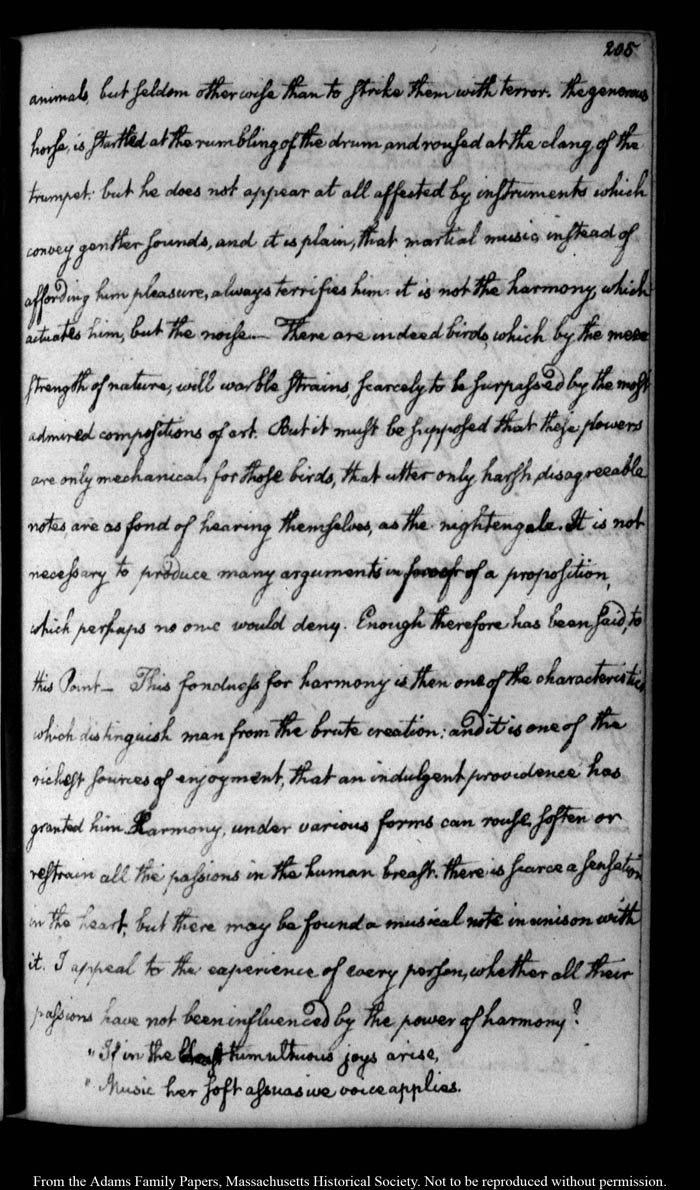 205
animals, but seldom otherwise than to strike them with terror. the generous
horse, is startled at the rumbling of the drum, and roused at the clang of the
trumpet: but he does not appear at all affected by instruments which
convey gentler sounds, and it is plain, that martial music instead of
affording him pleasure, always terrifies him: it is not the harmony, which
actuates him, but the noise.— There are indeed birds, which by the mere
strength of nature, will warble strains, scarcely to be surpassed by the most
admired compositions of art. But it must be supposed that these powers
are only mechanical, for those birds, that utter only harsh, disagreeable
notes, are as fond of hearing themselves, as the nightengale. It is not
necessary to produce many arguments in proof of a proposition,
which perhaps no one would deny. Enough therefore has been said, to
this Point— This fondness for harmony is then one of the characteristics
which distinguish man from the brute creation: and it is one of the
richest sources of enjoyment, that an indulgent providence has
granted him. Harmony, under various forms can rouse, soften or
restrain all the passions in the human breast. there is scarce a sensation
in the heart, but there may be found a musical note in unison with
it. I appeal to the experience of every person, whether all their
passions have not been influenced by the power of harmony?
"If in the breast tumultuous joys arise,
"Music her soft assuasive voice applies.
From the Adams Family Papers, Massachusetts Historical Society. Not to be reproduced without permission.